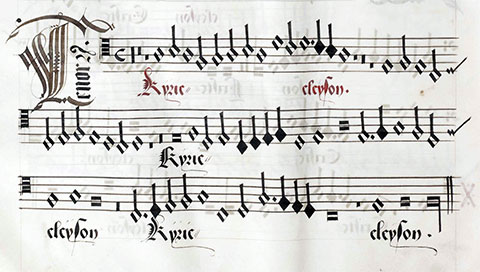 Tenor
Kyrie eleyson.
Kyrie
eleyson Kyrie eleyson.